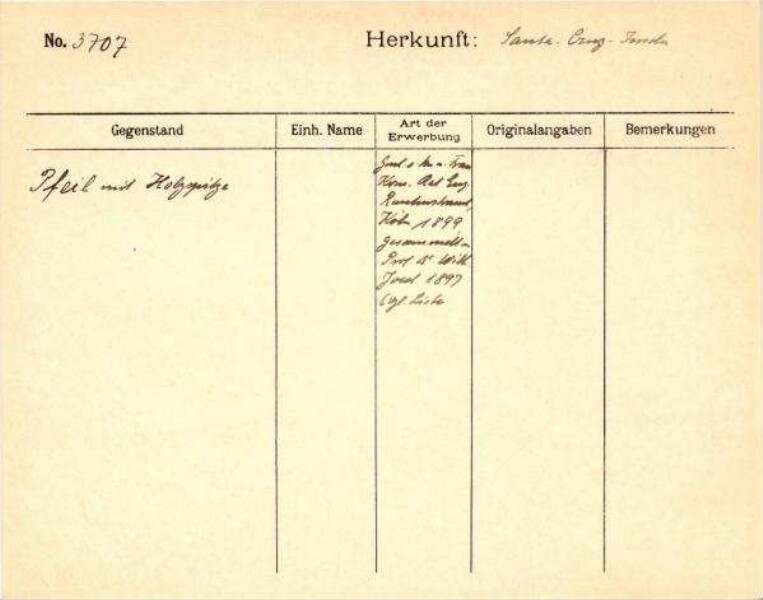 No. 3707
Herkunft: Santa-Cruz-Inseln
Gegenstand
Einh. Name
Art der Erwerbung
Originalangaben
Bemerkungen
Pfeil mit Holzspitze
Frau
Kom. Rat Eug.
Rautenstrauch,
Köln 1899
gesammelt v.
Prof. Dr Wilh.
Joest 1897
(vgl. Liste